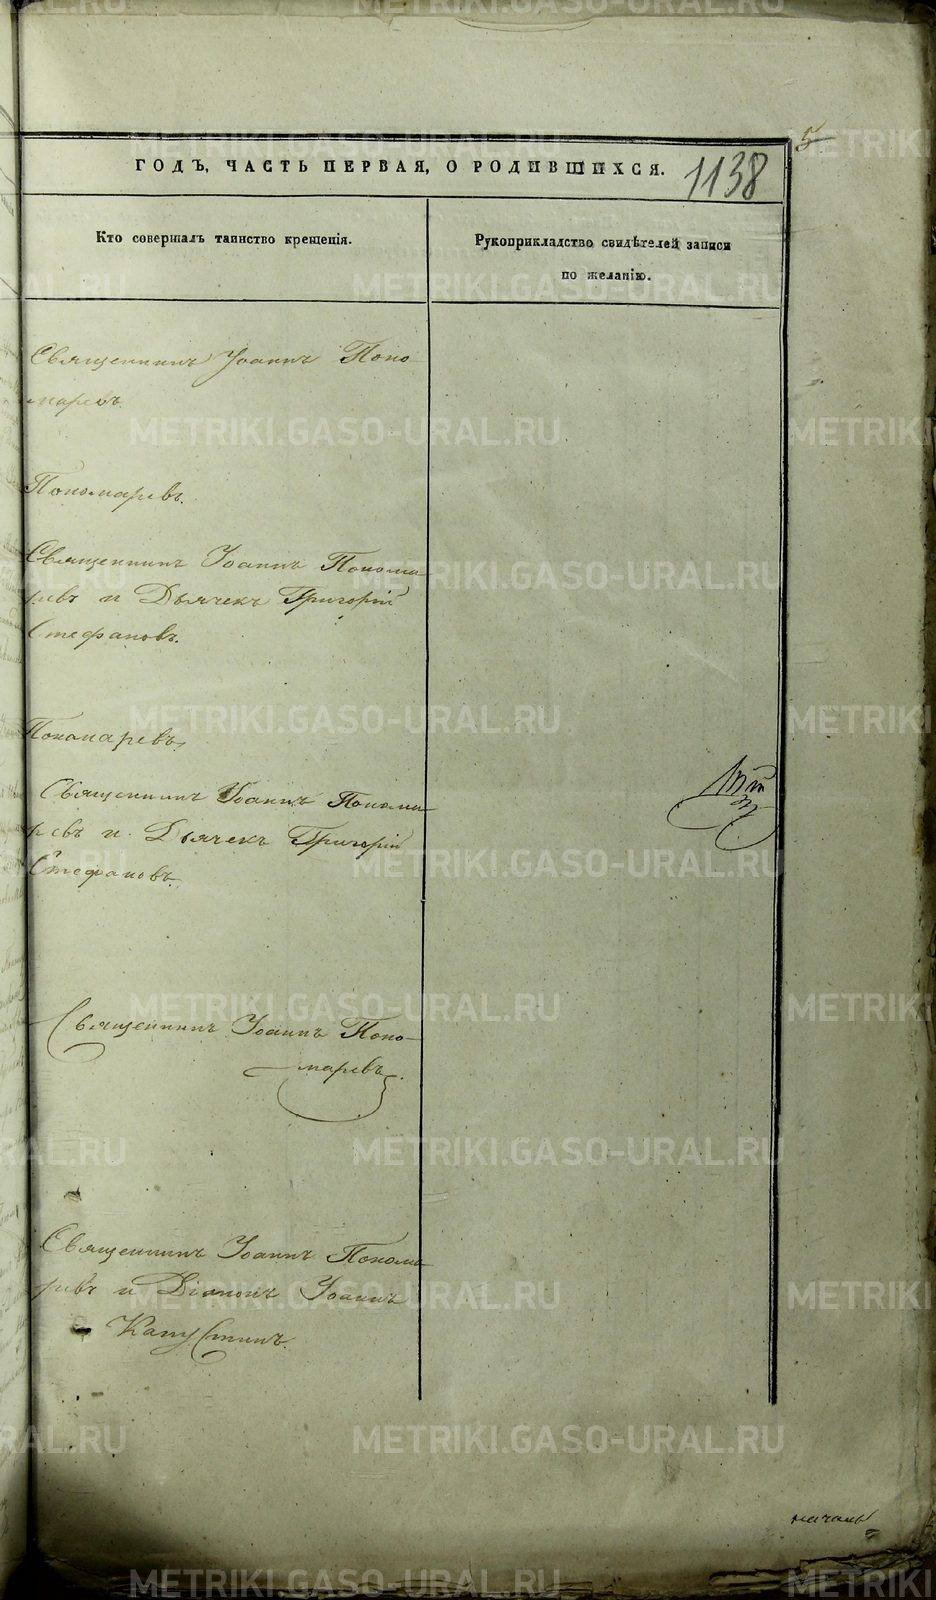 5
ГОДЪ, ЧАСТЬ ПЕРВАЯ, О РОДИВШИХСЯ.
1138
Кто совершалъ таинство крещенія.
Рукоприкладство свидѣтелей записи
по желанію.
Священникъ Іоаннъ Поно
маревъ.
Пономаревъ.
Священникъ Іоаннъ Понома
ревъ и Дьячекъ Григорій
Стефановъ.
Пономаревъ.
Священникъ Іоаннъ Понома
ревъ и Дьячекъ Григорій
Стефановъ.
Священникъ Іоаннъ Поно-
маревъ.
Священникъ Іоаннъ Понома
ревъ и Діаконъ Іоаннъ
Капустинъ.
METRIKI.GASO-URAL.RU